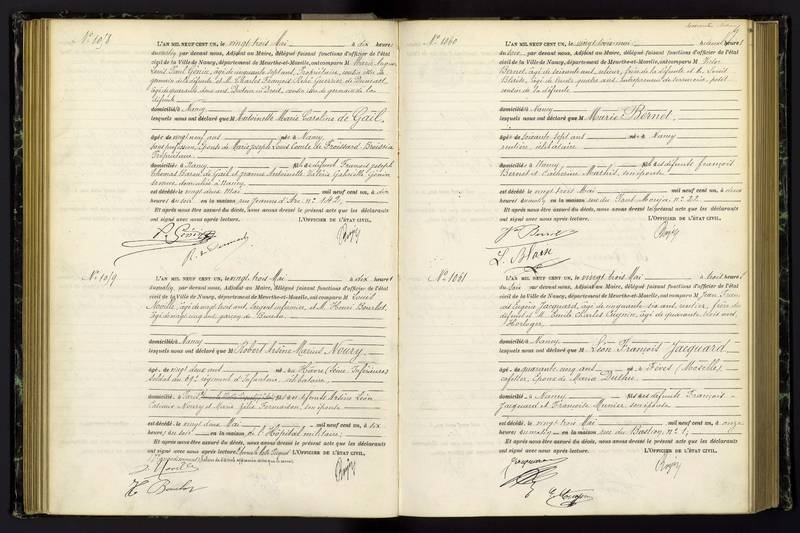 N° 1058
L'AN MIL NEUF CENT UN, le vingt trois Mai à dix heures
du par devant nous, Adjoint au Maire, délégué faisant fonctions d'officier de l'état
civil de la Ville de Nancy, département de Meurthe-et-Moselle, ont comparu M
Louis Paul Génin, âgé de cinquante sept ans, Propriétaire, cousin
de la défunte et M. Charles François René Guerrier de Dumast,
âgé de quarante deux ans, Docteur en Droit, cousin germain de la
défunte
domiciliés à Nancy
lesquels nous ont déclaré que M Antoinette Marie Caroline de Gail,
âgée de vingt neuf ans née à Nancy
sans profession, Epouse de Marie Joseph Louis Comte de Froissard Broissia
Propriétaire
domiciliée à Nancy fille de défunt François Joseph
Thomas Baron de Gail et Antoinette Valérie Gabrielle Génin,
sa veuve, domiciliée à Nancy
est décédée le vingt deux Mai mil neuf cent un, à dix
heures du soir en la maison rue Jeanne d'Arc n° 142,
Et après nous être assuré du décès, nous avons dressé le présent acte que les déclarants
ont signé avec nous après lecture. L'OFFICIER DE L'ÉTAT CIVIL,
P. Génin
N° 1059
L'AN MIL NEUF CENT UN, le vingt trois Mai à dix heures
du matin, par devant nous, Adjoint au Maire, délégué faisant fonctions d'officier de l'état
civil de la Ville de Nancy, département de Meurthe-et-Moselle, ont comparu M Louis
âgé de vingt trois ans, Sergent infirmier, et M. Henri Bourlot,
âgé de vingt cinq ans, garçon de Bureau
domiciliés à Nancy
lesquels nous ont déclaré que M Robert Arsène Marius Noury,
âgé de vingt deux ans né au Havre (Seine Inférieure)
soldat du 69e régiment d'Infanterie, célibataire,
domicilié à Paris fils de défunts Arsène Léon
Noury et Marie Julie
est décédé le vingt deux Mai mil neuf cent un, à six
heures du soir en la maison à l'Hôpital militaire;
Et après nous être assuré du décès, nous avons dressé le présent acte que les déclarants
ont signé avec nous après lecture. L'OFFICIER DE L'ÉTAT CIVIL,
N° 1060
L'AN MIL NEUF CENT UN, le vingt trois mai à deux heures
du soir par devant nous, Adjoint au Maire, délégué faisant fonctions d'officier de l'état
civil de la Ville de Nancy, département de Meurthe-et-Moselle, ont comparu M Victor
Bernet, âgé de soixante ans, relieur, frère de la défunte et M. Louis
âgé de trente quatre ans, Entrepreneur de serrurerie, petit
cousin de la défunte
domiciliés à Nancy
lesquels nous ont déclaré que M Marie Bernet,
âgée de soixante sept ans née à Nancy
rentière, célibataire
domiciliée à Nancy, fille de défunts François
Bernet et Catherine son épouse
est décédée le vingt trois Mai mil neuf cent un, à deux
heures du matin en la maison rue du Pont Mouja n° 22
Et après nous être assuré du décès, nous avons dressé le présent acte que les déclarants
ont signé avec nous après lecture. L'OFFICIER DE L'ÉTAT CIVIL,
N° 1061
L'AN MIL NEUF CENT UN, le vingt trois Mai à trois heures
du soir par devant nous, Adjoint au Maire, délégué faisant fonctions d'officier de l'état
civil de la Ville de Nancy, département de Meurthe-et-Moselle, ont comparu M Jean
Eugène Jacquard, âgé de cinquante six ans, rentier, frère du
défunt et M. Emile Charles Cugnin, âgé de quarante trois ans,
Horloger
domiciliés à Nancy
lesquels nous ont déclaré que M Léon François Jacquard
âgé de quarante cinq ans né à Fèves (Moselle)
cafetier, époux de Maria
domicilié à Nancy fils de défunts François
Jacquard et Françoise Munier, son épouse
est décédé le vingt trois Mai mil neuf cent un, à onze
heures du matin en la maison rue du Bastion, n° 1,
Et après nous être assuré du décès, nous avons dressé le présent acte que les déclarants
ont signé avec nous après lecture. L'OFFICIER DE L'ÉTAT CIVIL,
Jacquard